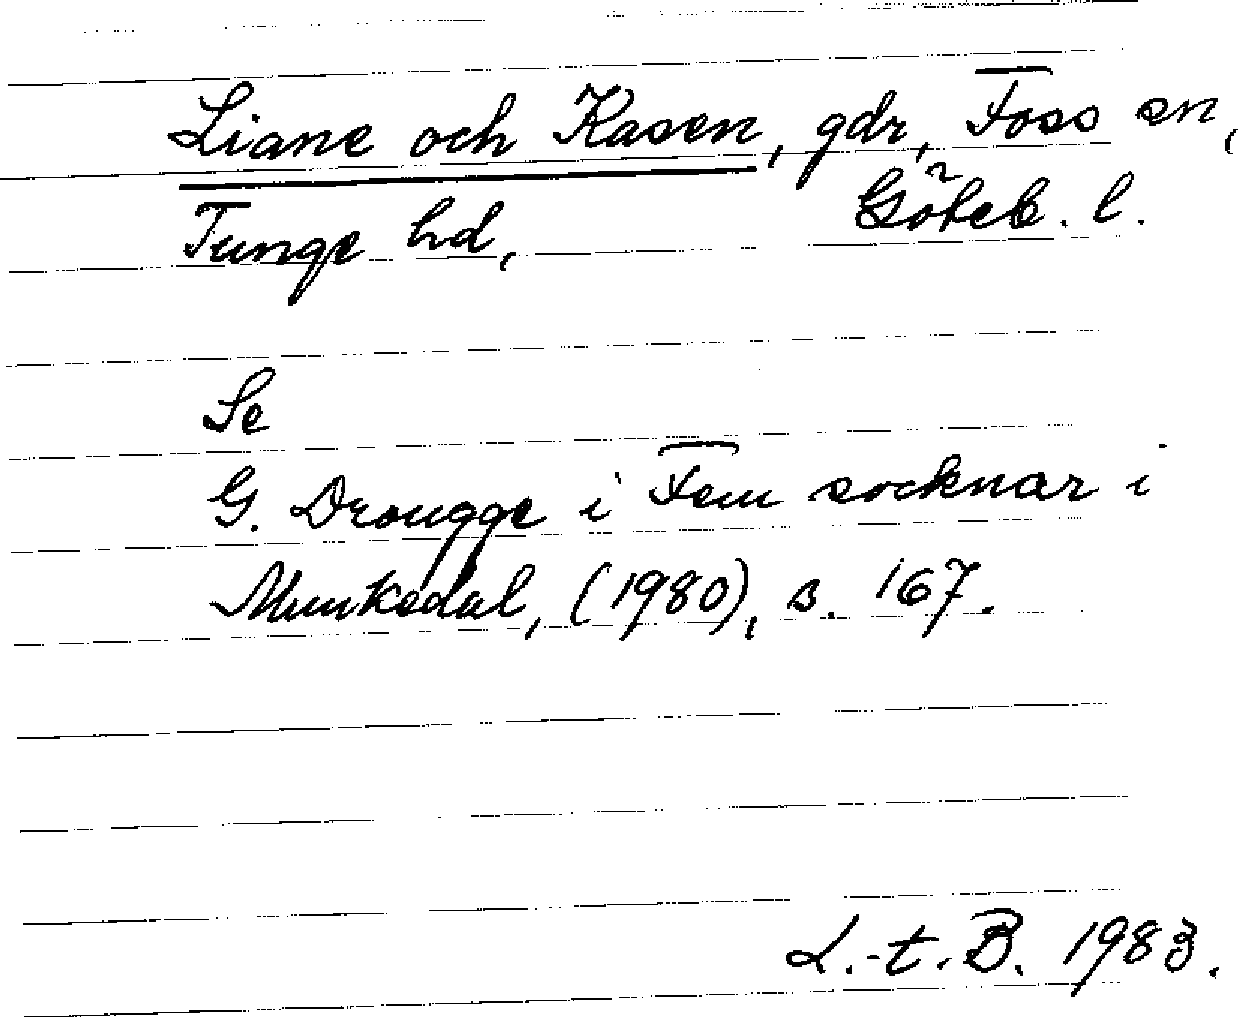 Liane och Kasen, gdr, Foss sn,
Tunge hd, Göteb. l.
Se
G. Drougge i Fem socknar i
Munkedal, (1980), s. 167.
L.-t. B. 1983.